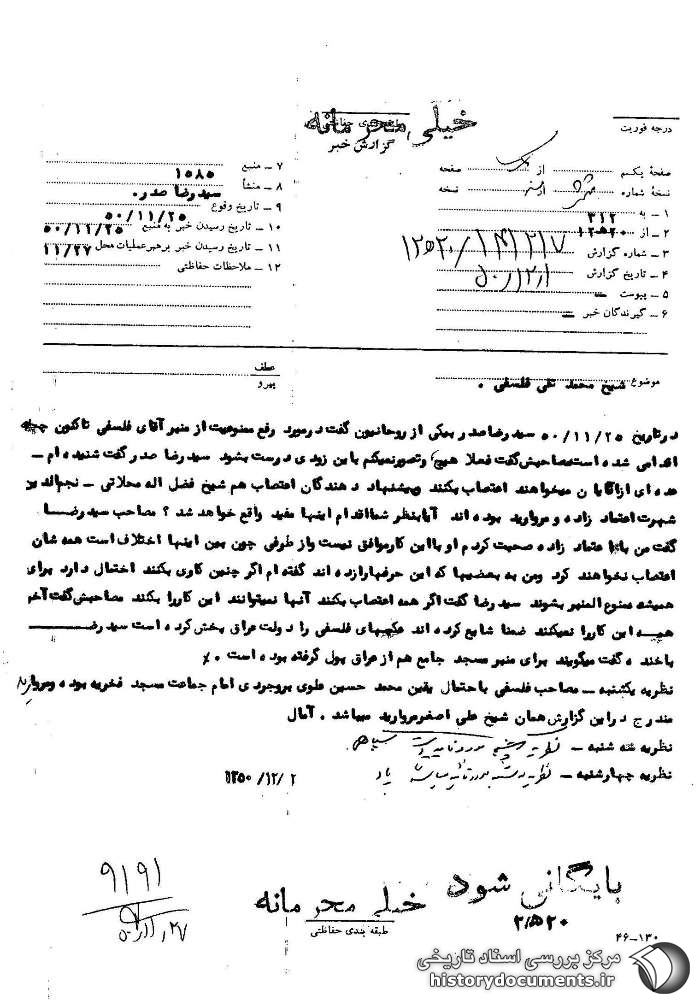 خیلی محرمانه
طبقه‌بندی حفاظتی
گزارش خبر
درجه فوریت
صفحهٔ یکم از یک صفحه
نسخهٔ شماره از نسخه
۱ – به ۳۱۲
۲ – از ۱۲ﻫ۲۰
۳ – شماره گزارش ۱۴۱۲۱۷/۱۲ﻫ۲۰
۴ – تاریخ گزارش ۵۰/۱۲/۱
۵ – پیوست –
۶ – گیرندگان خبر –
۷ – منبع ۱۵۸۵
۸ – منشأ سید رضا صدر.
۹ – تاریخ وقوع ۵۰/۱۱/۲۵
۱۰ – تاریخ رسیدن خبر به منبع ۵۰/۱۱/۲۵
۱۱ – تاریخ رسیدن خبر برهبر عملیات محل ۱۱/۲۷
۱۲ – ملاحظات حفاظتی
عطف
پیرو
موضوع شیخ محمد تقی فلسفی .
درتاریخ ۵۰/۱۱/۲۵ سید رضا صدر بیکی از روحانیون گفت درمورد رفع ممنوعیت از منبر آقای فلسفی تاکنون چه
اقدامی شده است مصاحبش گفت فعلا هیچ وتصورنمیکنم باین زودی درست بشود سید رضا صدر گفت شنیده ام –
عده ای ازآقایان میخواهند اعتصاب بکنند وپیشنهاد دهندگان اعتصاب هم شیخ فضل اله محلاتی – نجم الدین
شهرت اعتماد زاده و مروارید بوده اند آیا بنظر شما اقدام اینها مفید واقع خواهد شد ؟ مصاحب سید رضا
گفت من با اعتماد زاده صحبت کردم او بااین کارموافق نیست واز طرفی چون بین اینها اختلاف است همه شان
اعتصاب نخواهند کرد ومن به بعضیها که این حرفهارا زده اند گفته ام اگر چنین کاری بکنند احتمال دارد برای
همیشه ممنوع المنبر بشوند سید رضا گفت اگر همه اعتصاب بکنند آنها نمیتوانند این کاررا بکنند مصاحبش گفت آخر
همه این کاررا نمیکنند ضمنا شایع کرده اند عکسهای فلسفی را دولت عراق پخش کرده است سید رضا
باخنده گفت میگویند برای منبر مسجد جامع هم از عراق پول گرفته بوده است . /
نظریه یکشنبه – مصاحب فلسفی باحتمال یقین محمد حسین علوی بروجردی امام جماعت مسجد فخریه بوده ومروارید
مندرج دراین گزارش همان شیخ علی اصغر مروارید میباشد . آمال
نظریه سه شنبه –
نظریه چهارشنبه –
۱۳۵۰/۱۲/۲
بایگانی شود
۳۱۲ﻫ۲۰
خیلی محرمانه
طبقه بندی حفاظتی
۹۱۹۱
۴۶-۱۳۰
مرکز بررسی اسناد تاریخی
historydocuments.ir